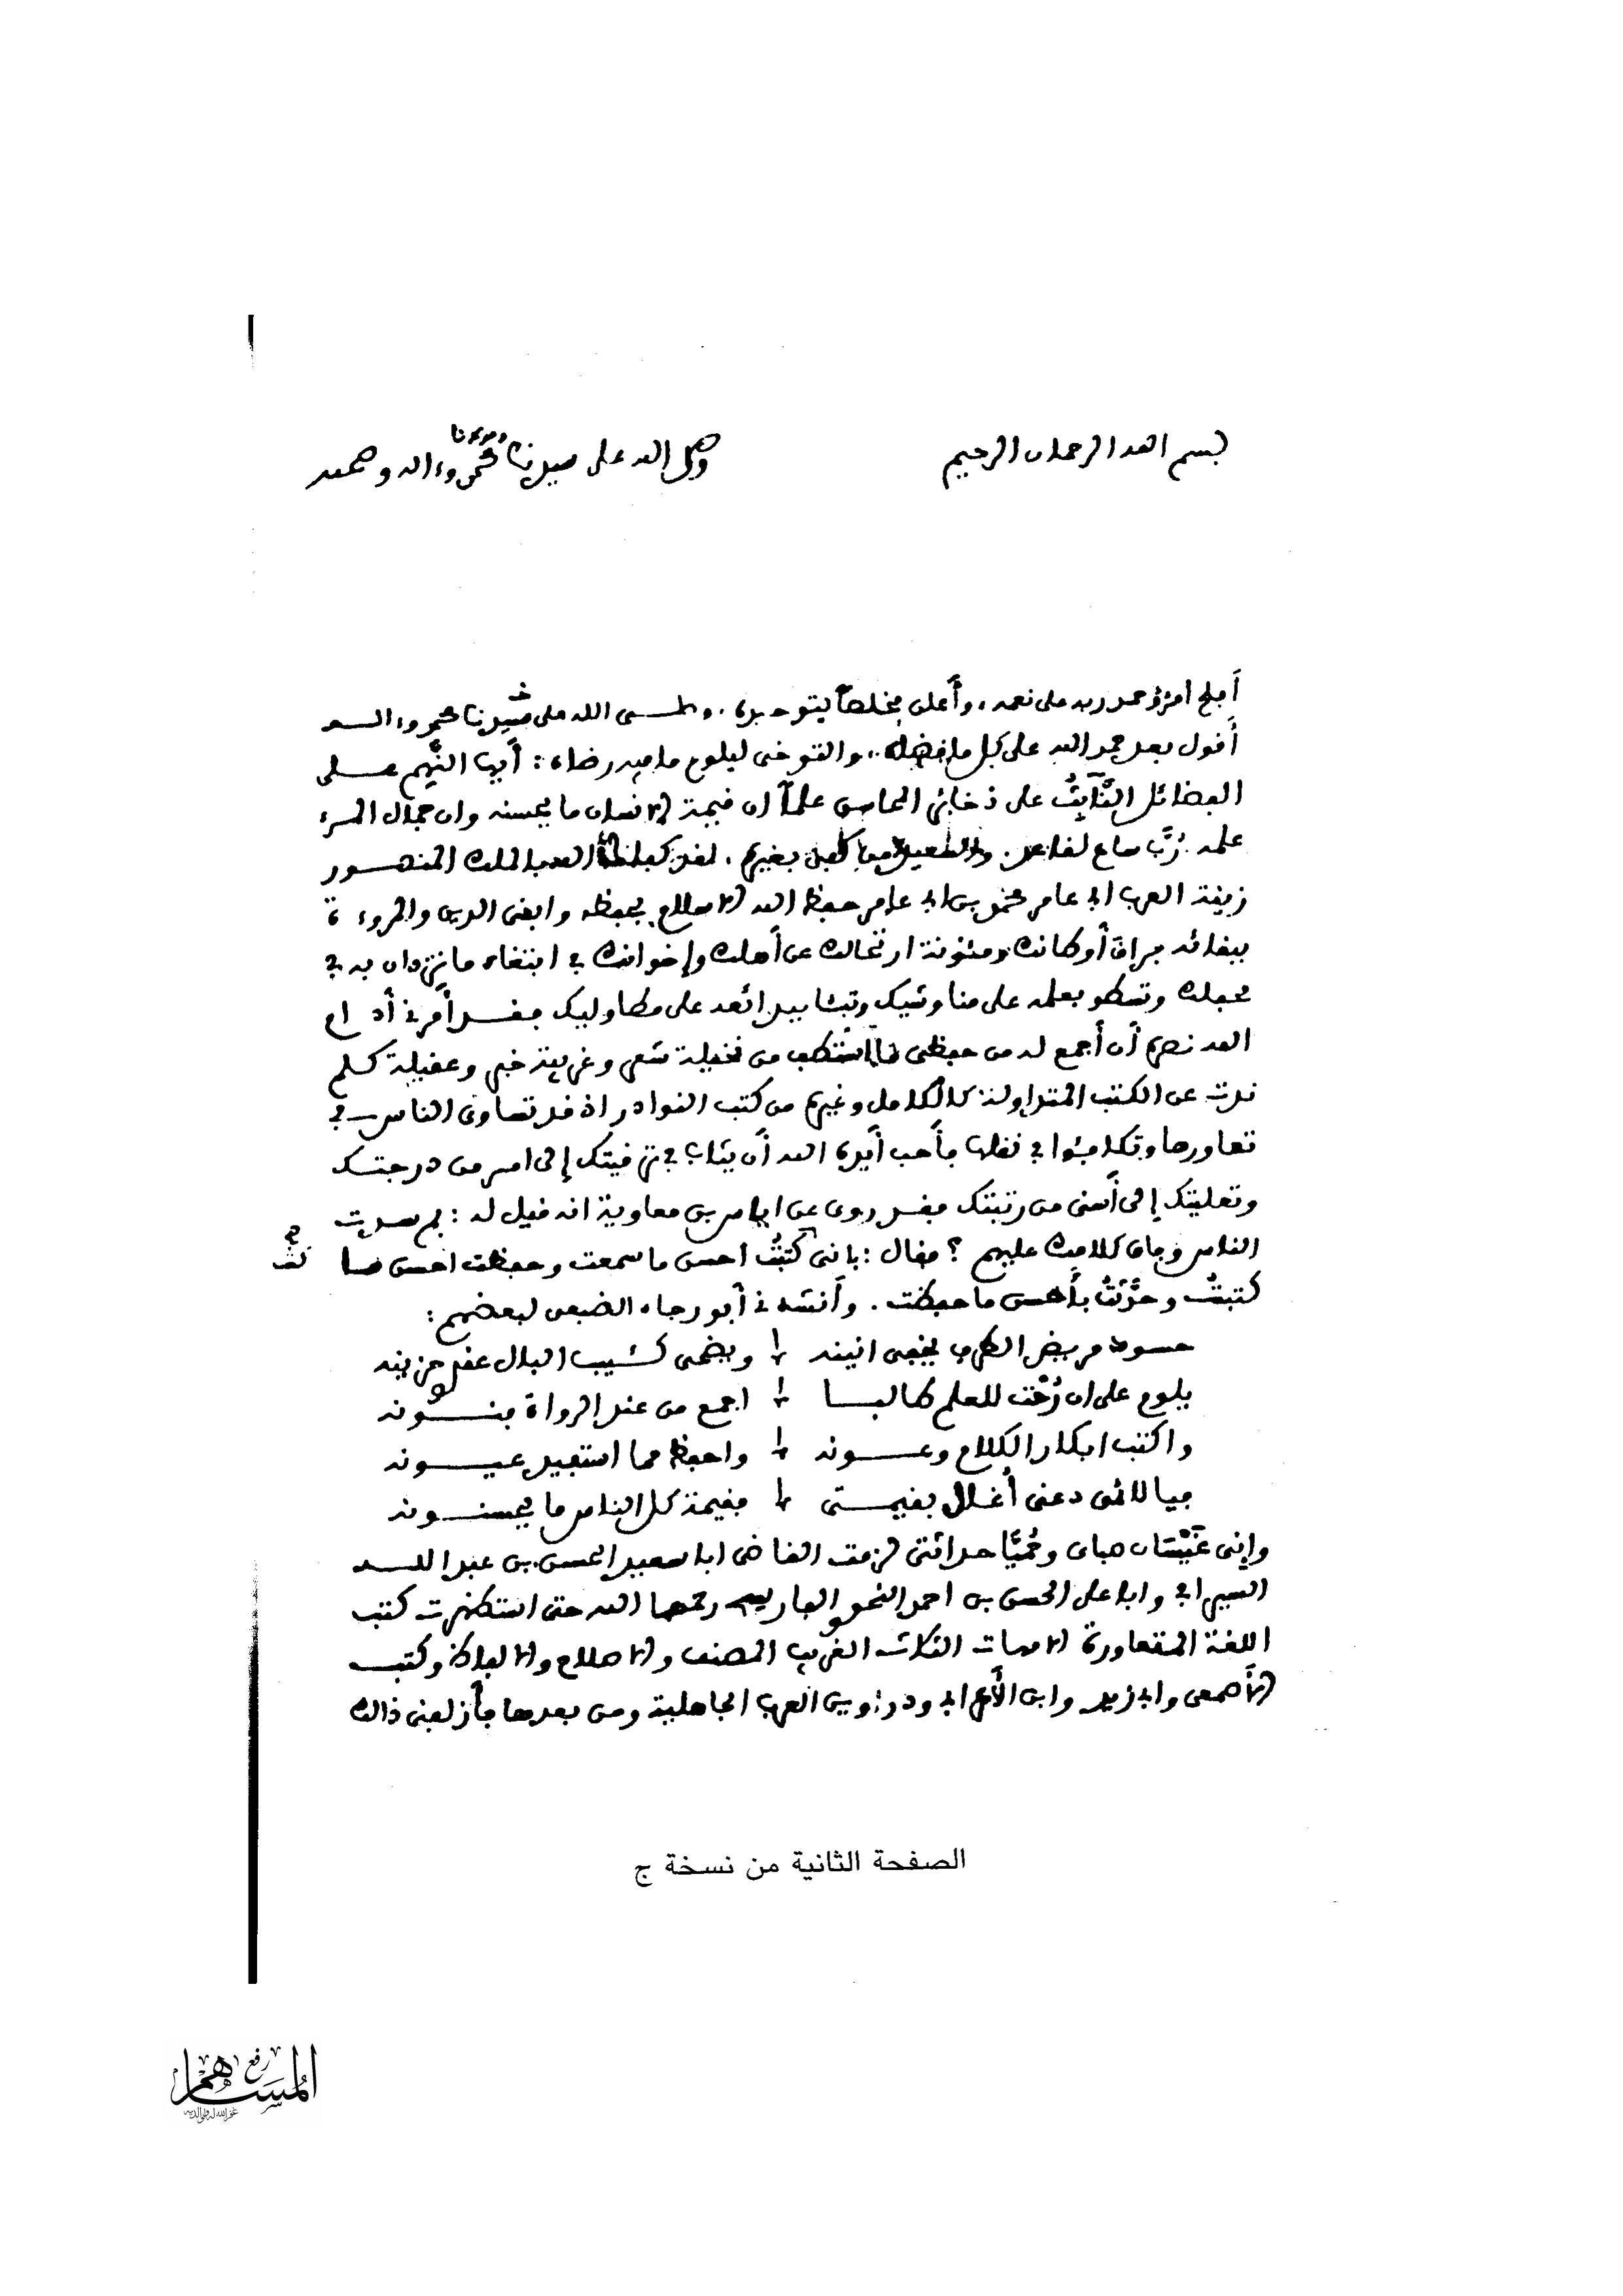 بسم الله الرحمان الرحيم
وصلى الله على سيدنا ومولانا محمد وءاله وصحبه
أبلج امرؤ حمد ربه على نعمه، وأعلن مخلصاً بتوحيده، وصلى الله على سيدنا محمد وءاله
أقول بعد حمد الله على كل ما فضله، والتوخى لبلوغ ما فيه رضاه: أيها النهم على
الفضائل على ذخائر المحاسن علماً ان قيمة الانسان ما يحسنه وان جمال المرء
علمه رُبَّ ساع لقاعد لغيره، لقد الملك المنصور
زينة العرب ابى عامر محمد بن ابى عامر حفظ الله الاسلام بحفظه وابقى الدين والمروءة
ببقائه ومئونة ارتحالك عن أهلك وإخوانك في ابتغاء ما تزدان به في
محفلك وتسطو بعلمه على مناوئيك على مطاوليك فقد أمرنى أدام
الله نصره أن أجمع له من حفظى من نخيلة شعر وغريبة خبر وعقيلة كلم
ندت عن الكتب المتداولة كالكامل وغيره من كتب النوادر اذ قد تساوى الناس في
تعاورها وتكافئوا في نقلها فأحب أيده الله أن في ترقيتك إلى اسمى من درجتك
وتعليتك إلى أسنى من رتبتك فقد روى عن اياس بن معاوية انه قيل له: بم سدت
الناس وجاز كلامك عليهم؟ فقال: بانى كتبتُ احسن ما سمعت وحفظت احسن ما
كتبتُ وحدَّثتُ بأحسن ما حفظت. وأنشدنى أبو رجاء الضبعى لبعضهم:
حسود مريض القلب يخفى انينه ويضحى كئيب البال عندى حزينه
يلوم على ان رُحْت للعلم طالبا اجمع من عند الرواة فنونه
واكتب ابكار الكلام وعونه واحفظ مما استفيد عيونه
فيا لائمى دعنى أغال بقيمتى فقيمة كل الناس ما يحسنونه
وإنى صباى وحُمَيَّا حداثتى لزمت القاضى ابا سعيد الحسن بن عبد الله
السيرافى وابا على الحسن بن احمد النحوى الفارسى رحمهما الله حتى استظهرت كتب
اللغة المتعاورة الامهات الثلاث الغريب المصنف والاصلاح والالفاظ وكتب
الأصمعى وابى زيد وابن الأعرابى ودواوين العرب الجاهلية ومن بعدها فأزلفنى ذالك
الصفحة الثانية من نسخة ج